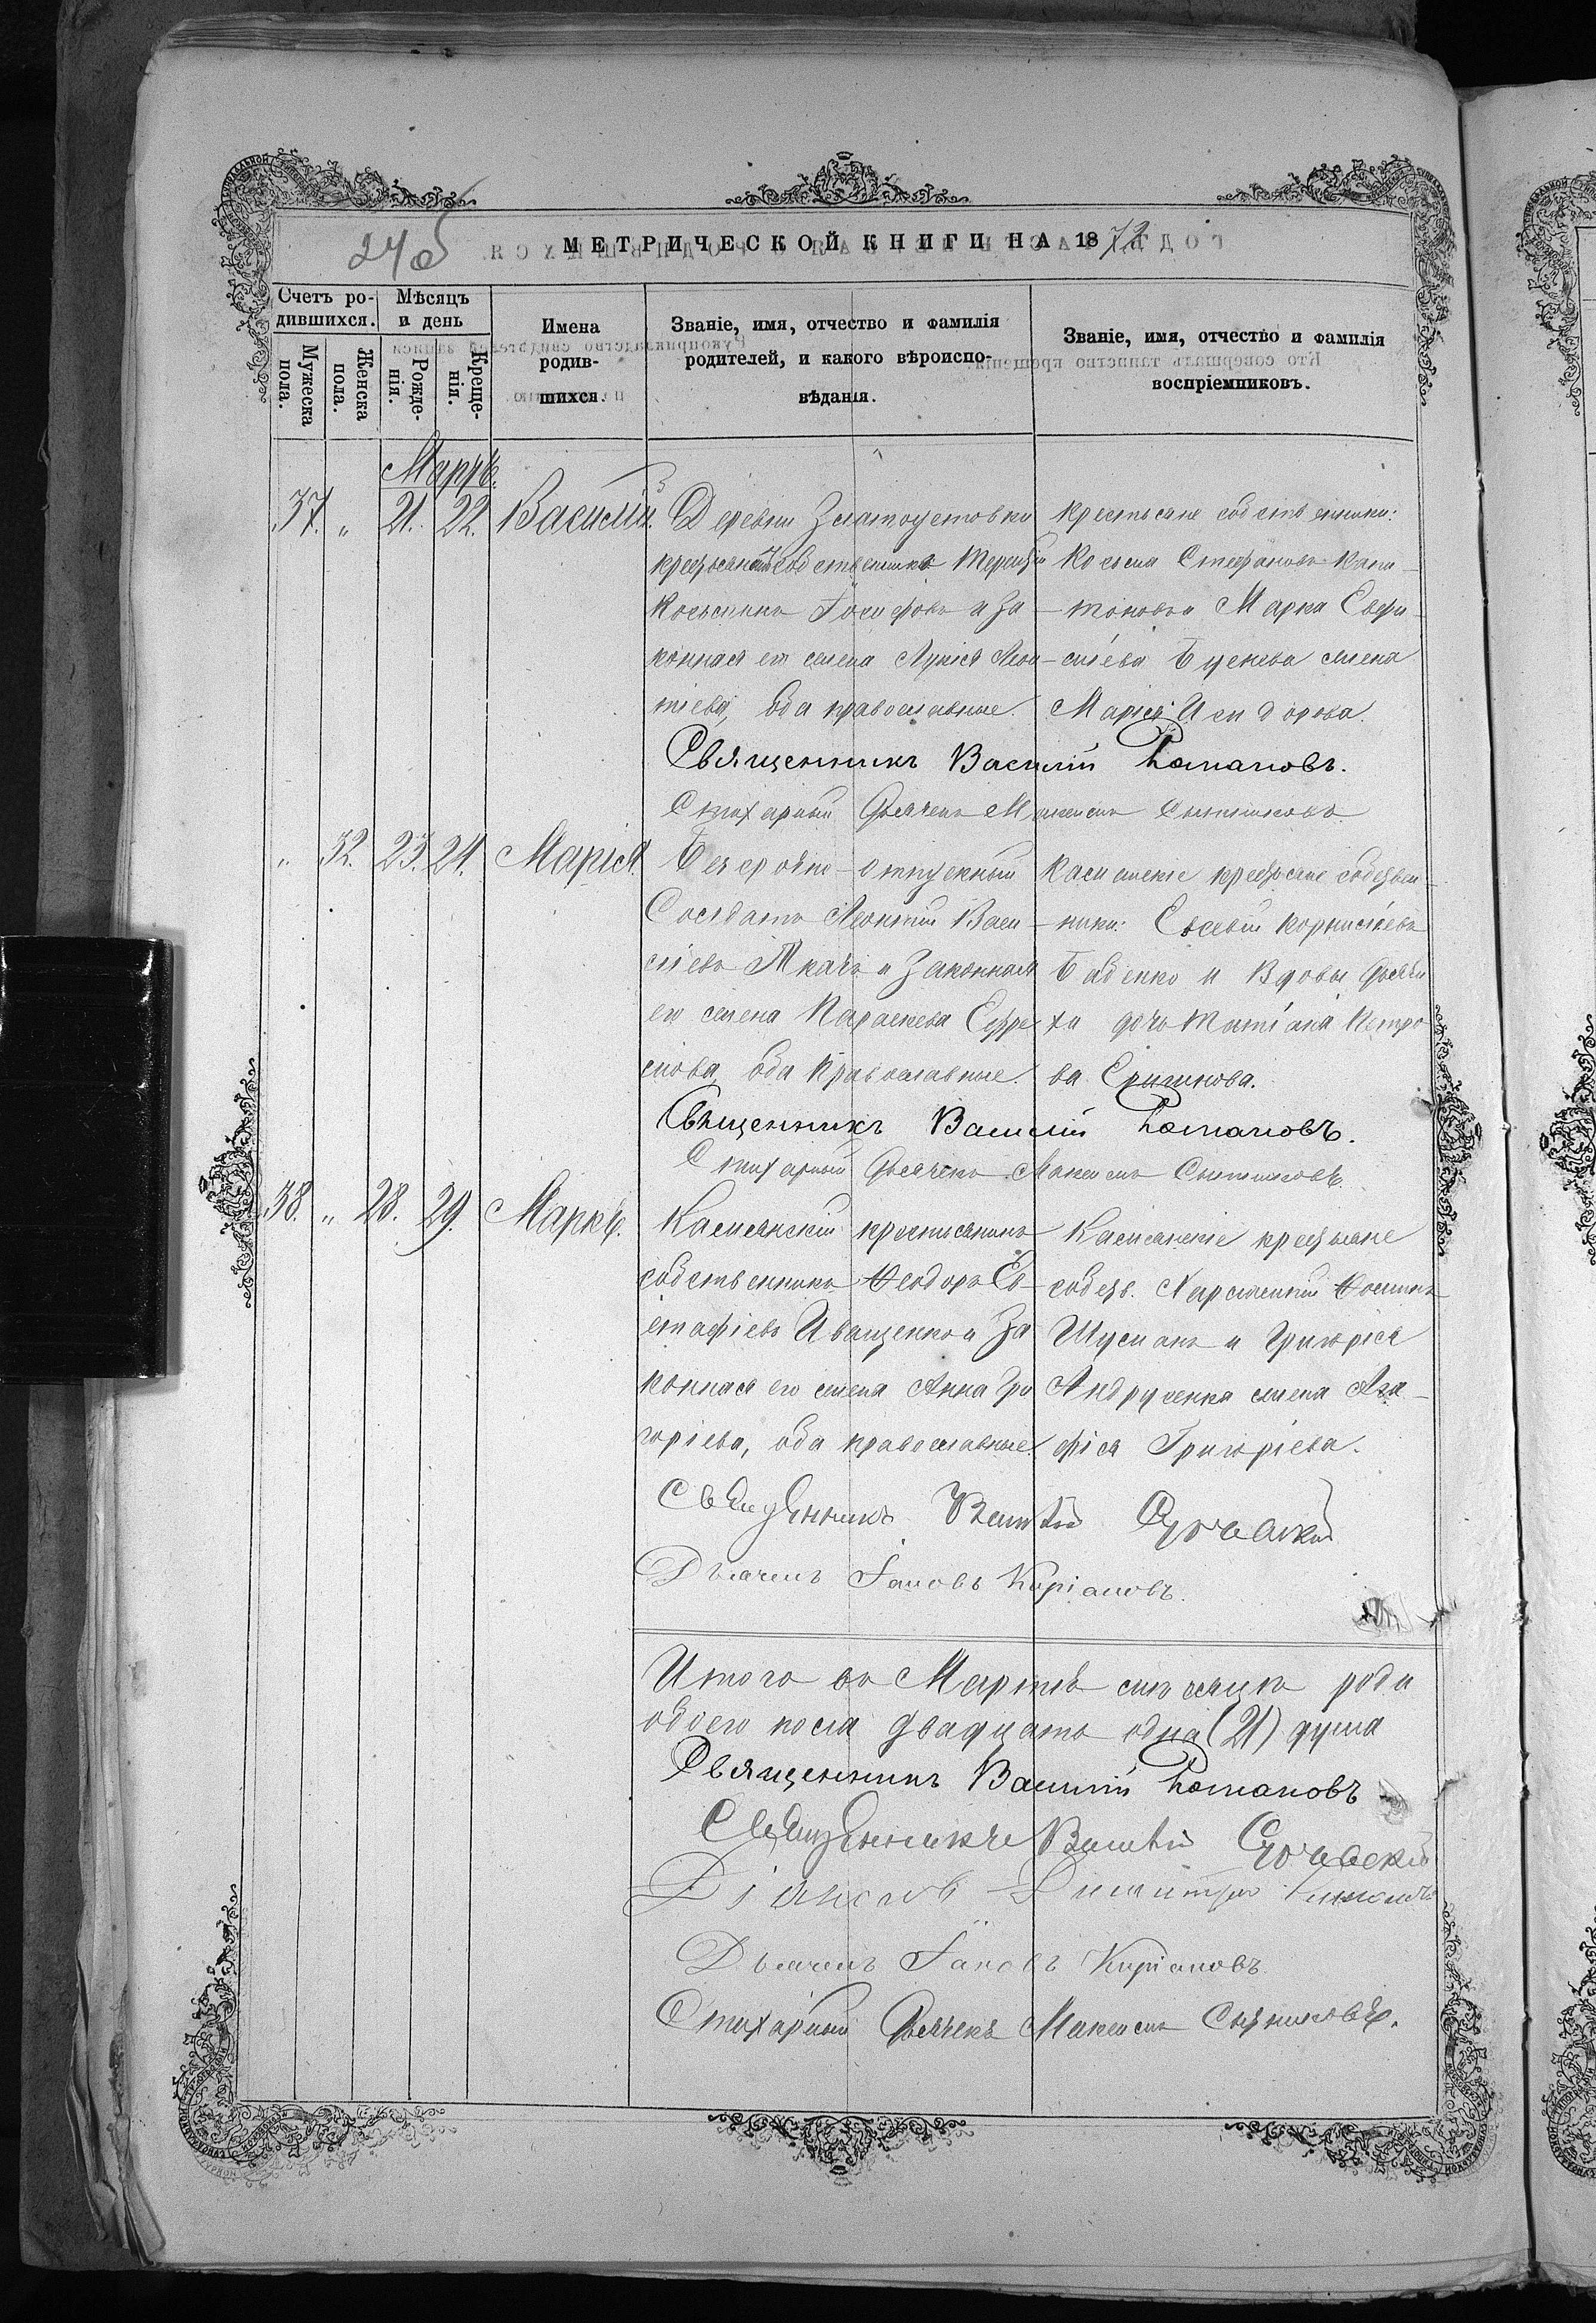 МЕТРИЧЕСКОЙ КНИГИ НА 1872
Счетъ ро-
дившихся.
Мужеска
пола.
Женска
пола.
Мѣсяцъ
и день
Рожде-
нія.
Креще-
нія.
Имена
родив-
шихся.
Званіе, имя, отчество и фамилія
родителей, и какого вѣроиспо-
вѣданія.
Званіе, имя, отчество и фамилія
воспріемниковъ.
Мартъ.
37. „ 21. 22. Василій.
Деревни Златоустовки
Косьминъ Іосифовъ и За-
конная его жена Лукія Леон-
тіева, оба православные.
крестьяне собственники:
Косьма Стефановъ
Марка
жена
Марія Исидорова.
Священникъ Василій Романовъ.
Стихарный Дьячекъ Максимъ
„ 32. 23. 24. Марія.
Безсрочно-отпускный
Солдатъ Леонтій Васи-
ліевъ Ткачъ и Законная
его жена Параскева Ефре-
мова, оба Православные.
крестьяне собствен-
ники: Евсевій Корниліевъ
Бабенко и Вдовы Дьячи-
ха дочь Татіана Петро-
ва
Священникъ Василій Романовъ.
Стихарный Дьячекъ Максимъ
38. „ 28. 29. Маркъ.
крестьянинъ
собственникъ Ѳеодоръ Ев-
стафіевъ Иващенко и За-
конная его жена Анна Гри-
горіева, оба православные.
крестьяне
собств.
и Григорія
Андрущенка жена Ага-
фія Григоріева.
Священникъ
Дьячекъ Іаковъ Киріановъ.
Итого въ Мартѣ мѣсяцѣ роди
обоего пола двадцать одна (21) душа
Священникъ Василій Романовъ
Священникъ
Діаконъ Димитрій
Дьячекъ Іаковъ Киріановъ.
Стихарный Дьячекъ Максимъ